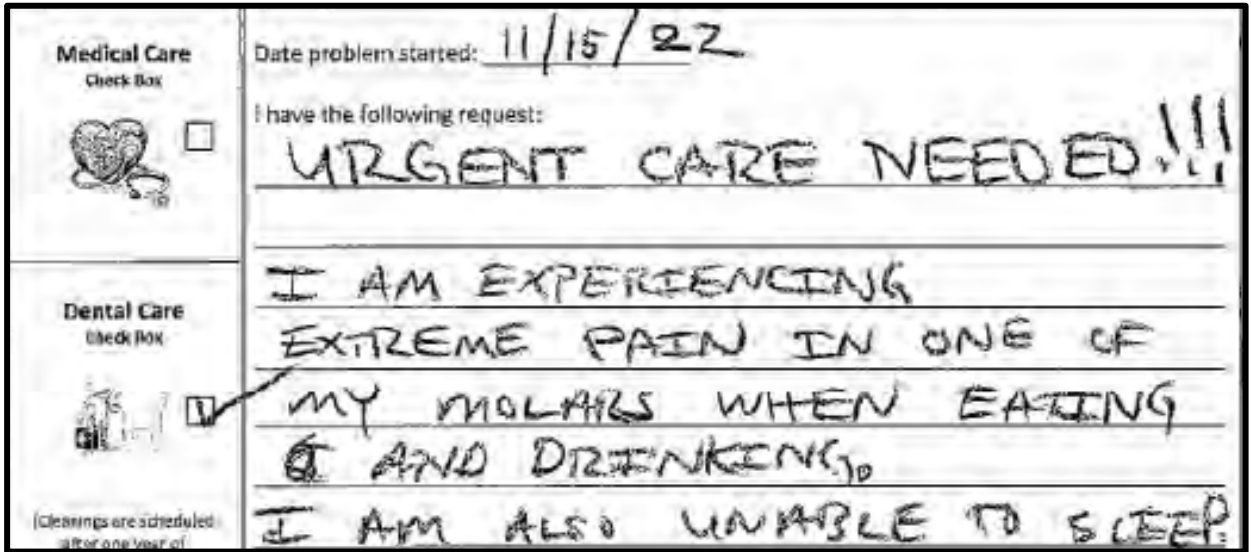 Medical Care
Check Box
Dental Care
Check Box
(Cleanings are scheduled
after one year of
Date problem started: 11/15/22
I have the following request:
URGENT CARE NEEDED!!!
I AM EXPERIENCING
EXTREME PAIN IN ONE OF
MY MOLARS WHEN EATING
AND DRINKING.
I AM ALSO UNABLE TO SLEEP.